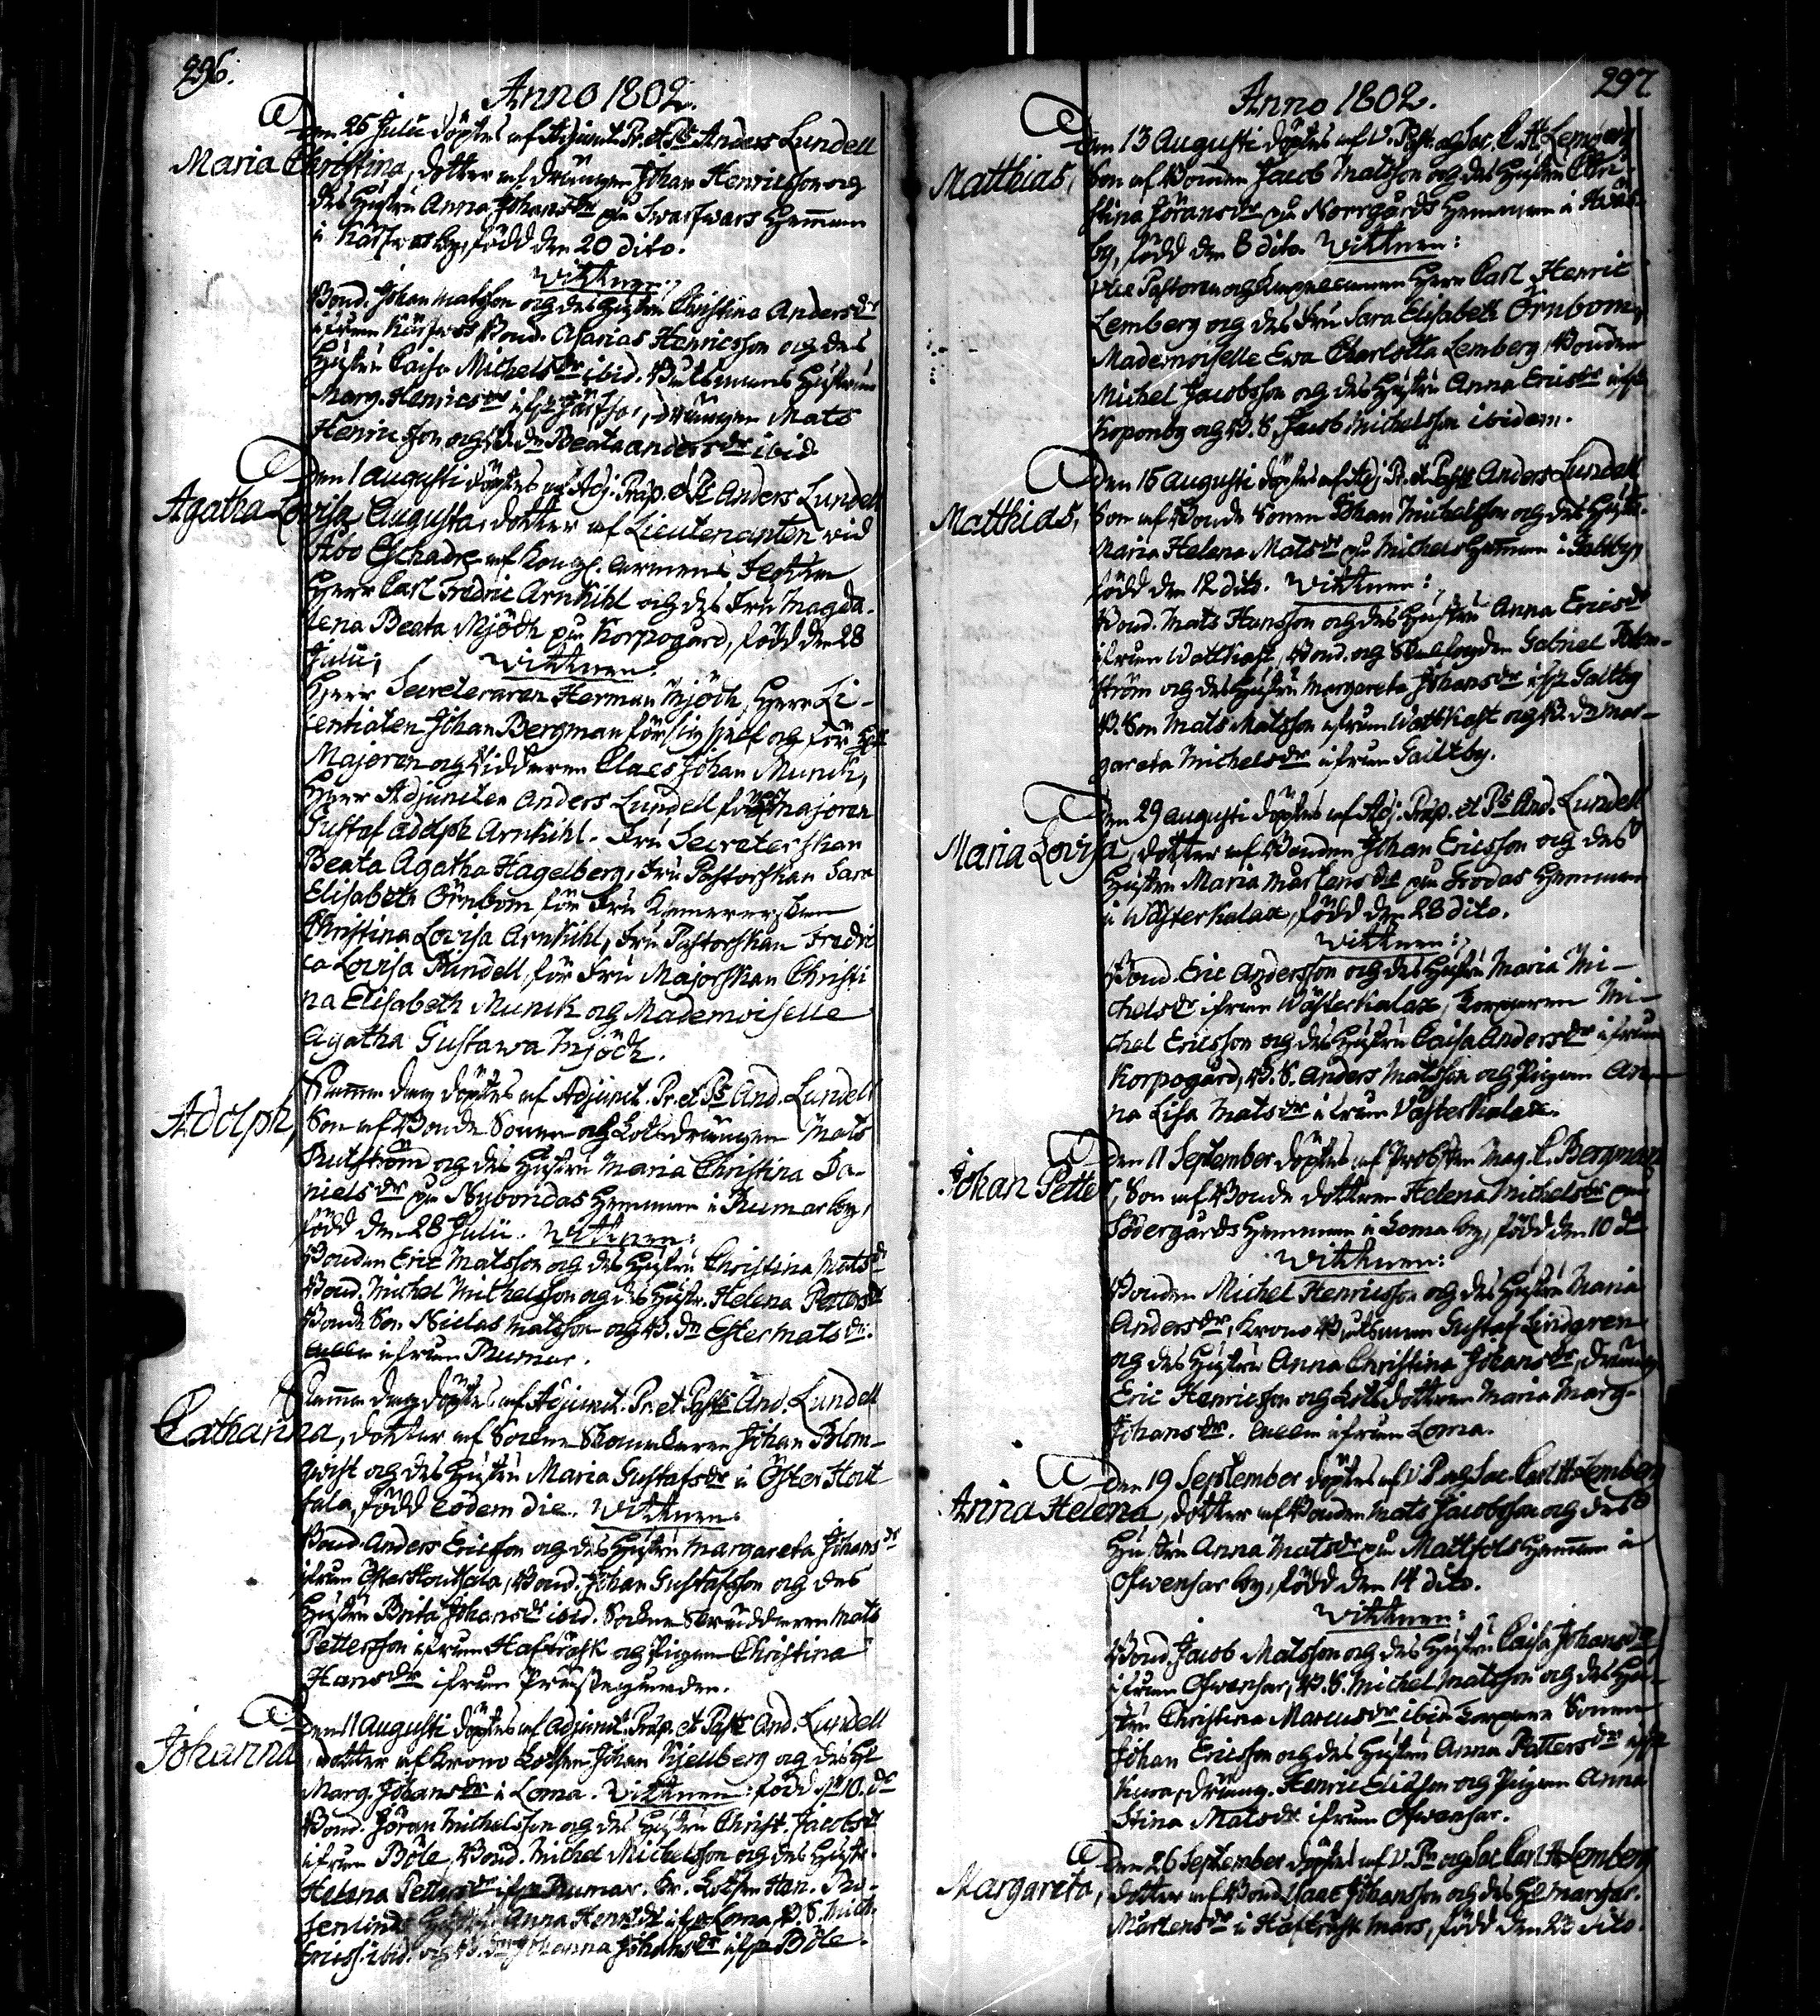 296.
Anno 1802.
Den 25 Julii döptes af Adjunct. Pr. et Ps Anders Lundell
Maria Christina, dotter af drängen Johan Henricsson og
des Hustru Anna Johansdr på Swarfwars Hemman
i Kärfwas by, född den 20 dito.
Wittnen:
Bond. Johan Matsson og des Hustru Christina Andersdr
ifrån Bond. Asarias Henricsson og des
Hustru Caisa Michelsdr ibid. Båtsmans Hustrun
Marg. Henricsdr drängen Mats
Henricsson og B. dr Beata Andersdr ibid
Den 1 Augusti döptes af Adj. Præp. et Ps Anders Lundell
Agatha Lovisa Augusta, dotter af Lieutenanten wid
Åbo Eschadre af Kongl. Armens flotta
Herr Carl Fredric Arnkihl og des Fru Magda-
lena Beata Mjödh på Korpogård, född den 28
Julii; Wittnen:
Herr Secreteraren Herman Mjödh, Herr Li-
centiaten Johan Bergman för sig sjelf og för Hr
Majoren og Riddaren Claes Johan Munck,
Herr Adjuncten Anders Lundell för Majoren
Gustaf Adolph Arnkihl. Fru Secreterskan
Beata Agatha Hagelberg, Fru Pastorskan Sara
Elisabeth Örnbom för Fru Kamererskan
Christina Lovisa Arnkihl, Fru Pastorskan Fredri
ca Lovisa Rindell, för Fru Majorskan Christi
na Elisabeth Munck og Mademoiselle
Agatha Gustawa Mjödh.
Samma dag döptes af Adjunct. Pr. et Ps And. Lundell
Adolph, Son af Bonde Sonen og Lotsdrängen Mats
Rutström og des Hustru Maria Christina Da-
nielsdr på Nybondas Hemman i Rumar by,
född den 28 Julii. Wittnen:
Bonden Eric Matsson og des Hustru Christina Matsdr
Bond. Michel Michelsson og des Hustr. Helena Pettersdr
Bonde Son Niclas Matsson og B. dr Ester Matsdr.
alla ifrån Rumar.
Samma dag döptes af Adjunct. Pr. et Past. And. Lundell
Catharina, dotter af Sockne Skomakaren Johan Blom-
qwist og des Hustru Maria Gustafsdr i Öster Hout
skala, född eodem die. Wittnen:
Bond. Anders Ericsson og des Hustru Margareta Johansdr
ifrån Österhoutskala, Bond. Johan Gustafsson og des
Hustru Brita Johansdr ibid. Sockne Skräddaren Mats
Pettersson ifrån Hafträsk og Pigan Christina
Hansdr ifrån Prästegården.
Den 11 Augusti döptes af Adjunct. Præp. et Past. And. Lundell
Johanna, dotter af Krono Lotsen Johan Kjellberg og des H
Marg. Johansdr i Loma. Wittnen: född d. 10. do
Bond. Jöran Michelsson og des Hustru Christ. Jacobsdr
ifrån Böle, Bond. Michel Michelsson og des Hustr.
Helena Pettersdr ifr. Rumar. Kr. Lotsen Hen. Ro-
senlind Anna Henrsdr ifr. Loma, B. S. Mich.
Ericss. ibid. og B. dr Johanna Johansdr ifr. Böle.
297.
Anno 1802.
Den 13 Augusti döptes af V. Past. og Sac. C. H. Lemberg
Matthias, Son af Bonden Jacob Matsson og des Hustru Chri-
stina Jöransdr på Norrgårds Hemman i
by, född den 8 dito. Wittnen:
Vice Pastoren og Herr Carl Henric
Lemberg og des Fru Sara Elisabeth Örnbom,
Mademoiselle Ewa Charlotta Lemberg, Bonden
Michel Jacobsson og des Hustru Anna Ericsdr ifr.
Korponby og B. S. Jacob Michelsson ibidem.
Den 15 Augusti döptes af Adj. Pr. et Past. Anders Lundell
Matthias, Son af Bonde Sonen Johan Michelsson og des Hustr.
Maria Helena Matsdr på Michels Hemman i Galtby,
född den 12 dito. Wittnen:
Bond. Mats Hansson og des Hustru Anna Ericsdr
ifrån Wattkast, Bond. og Gabriel Blom-
ström og des Hustru Margareta Johansdr ifr. Galtby
B. Son Mats Matsson ifrån Wattkast og B. dr Mar-
gareta Michelsdr ifrån Galtby.
Den 29 Augusti döptes af Adj. Præp. et Ps And. Lundell
Maria Lovisa, dotter af Bonden Johan Ericsson og des
Hustru Maria Mårtensdr på Frodas Hemman
i Wästerkalax, född den 28 dito.
Wittnen:
Bond. Eric Andersson og des Hustru Maria Mi-
chelsdr ifrån Wästerkalax, Mi-
chel Ericsson og des Hustru Caisa Andersdr ifrån
Korpogård, B. S. Anders Matsson og Pigan An-
na Lisa Matsdr ifrån Västerkalax.
Den 11 September döptes af Probsten Mag. C. Bergman
Johan Petter, Son af Bonde dottren Helena Michelsdr på
Södergårds Hemman i Loma by, född den 10 do
Wittnen:
Bonden Michel Henricsson og des Hustru Maria
Andersdr, Krono Båtsman Gustaf Lindgren
og des Hustru Anna Christina Johansdr, dräng.
Eric Henricsson og Lotsdottren Maria Marg.
Johansdr. alla ifrån Loma.
Den 19 September döptes af V. P. og Sac. Carl H. Lemberg
Anna Helena, dotter af Bonden Mats Jacobsson og des
Hustru Anna Matsdr på Mattsols Hemman i
Ofwensar by, född den 14 dito.
Wittnen:
Bond. Jacob Matsson og des Hustru Caisa Johansdr
ifrån Ofwensar, B. S. Michel Matsson og des Hu-
stru Christina Marcusdr ibid Sonen
Johan Ericsson og des Hustru Anna Pettersdr ifr.
dräng. Henric Ericsson og Pigan Anna
Stina Matsdr ifrån Ofwensar.
Den 26 September döptes af V. P. og Sac. Carl H. Lemberg
Margareta, dotter af Bond. Isaac Johansson og des H. Margar.
Mårtensdr i född den 22 dito.